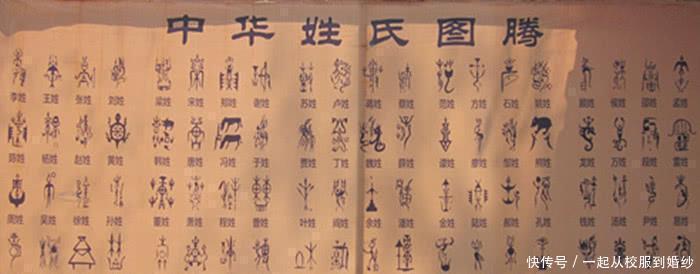 中华姓氏图腾
李姓 王姓 张姓 刘姓 梁姓 宋姓 郑姓 谢姓 苏姓 卢姓 蒋姓 蔡姓 范姓 方姓 石姓 姚姓 顾姓 侯姓 邵姓 孟姓
陈姓 杨姓 赵姓 黄姓 韩姓 唐姓 冯姓 于姓 贾姓 丁姓 魏姓 薛姓 谭姓 廖姓 邹姓 熊姓 龙姓 万姓 段姓 雷姓
周姓 吴姓 徐姓 孙姓 董姓 萧姓 程姓 曹姓 叶姓 阎姓 余姓 潘姓 金姓 陆姓 郝姓 孔姓 钱姓 汤姓 尹姓 易姓
快传号 / 一起从校服到婚纱